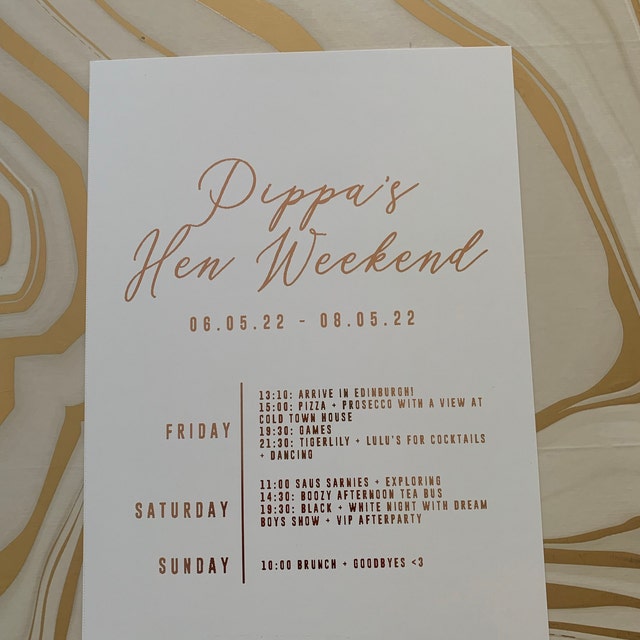 Pippa's
Hen Weekend
06.05.22 - 08.05.22
FRIDAY
13:10: ARRIVE IN EDINBURGH!
15:00: PIZZA + PROSECCO WITH A VIEW AT
COLD TOWN HOUSE
19:30: GAMES
21:30: TIGERLILY + LULU'S FOR COCKTAILS
+ DANCING
SATURDAY
11:00 SAUS SARNIES + EXPLORING
14:30: BOOZY AFTERNOON TEA BUS
19:30: BLACK + WHITE NIGHT WITH DREAM
BOYS SHOW + VIP AFTERPARTY
SUNDAY
10:00 BRUNCH + GOODBYES <3